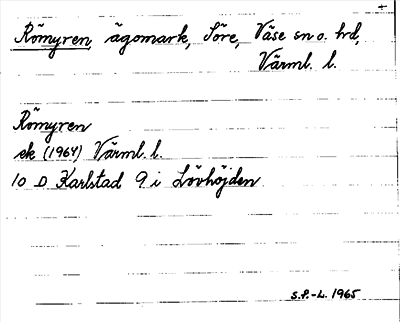 +
Römyren, ägomark, Söre, Väse sn o. hrd,
Värml. l.
Römyren
ek (1964) Värml. l.
10 D Karlstad 9 i Lövhöjden
S.P.-L. 1965